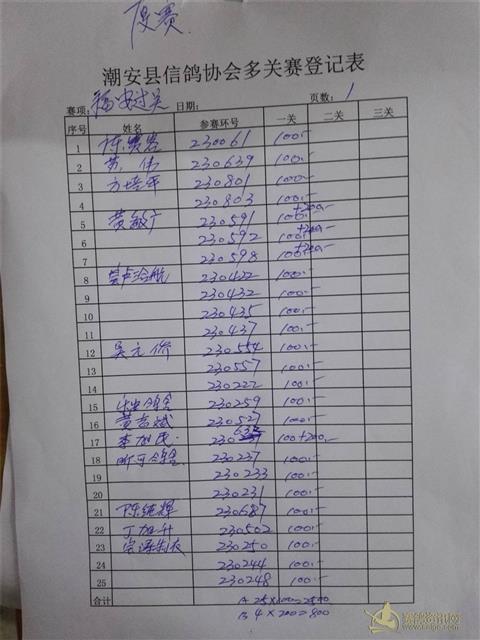 复赛
潮安县信鸽协会多关赛登记表
赛项: 日期: 页数: 1
序号 姓名 参赛环号 一关 二关 三关
1 230061 100.-
2 苏 伟 230639 100.-
3 方培年 230801 100.-
4 230803 100.-
5 230591 100.- +200.-
6 230592 100.- +200.-
7 230598 100.- +200.-
8 230422 100.-
9 230432 100.-
10 230435 100.-
11 230437 100.-
12 吴元 230554 100.-
13 230557 100.-
14 230222 100.-
15 230259 100.-
16 黄吉斌 230527 100.-
17 李旭民 230635 100+200.-
18 230237 100.-
19 230233 100.-
20 230231 100.-
21 陈继辉 230687 100.-
22 丁旭升 230502 100.-
23 230250 100.-
24 230244 100.-
25 230248 100.-
合计 A 25×100=2500
B 4×200=800